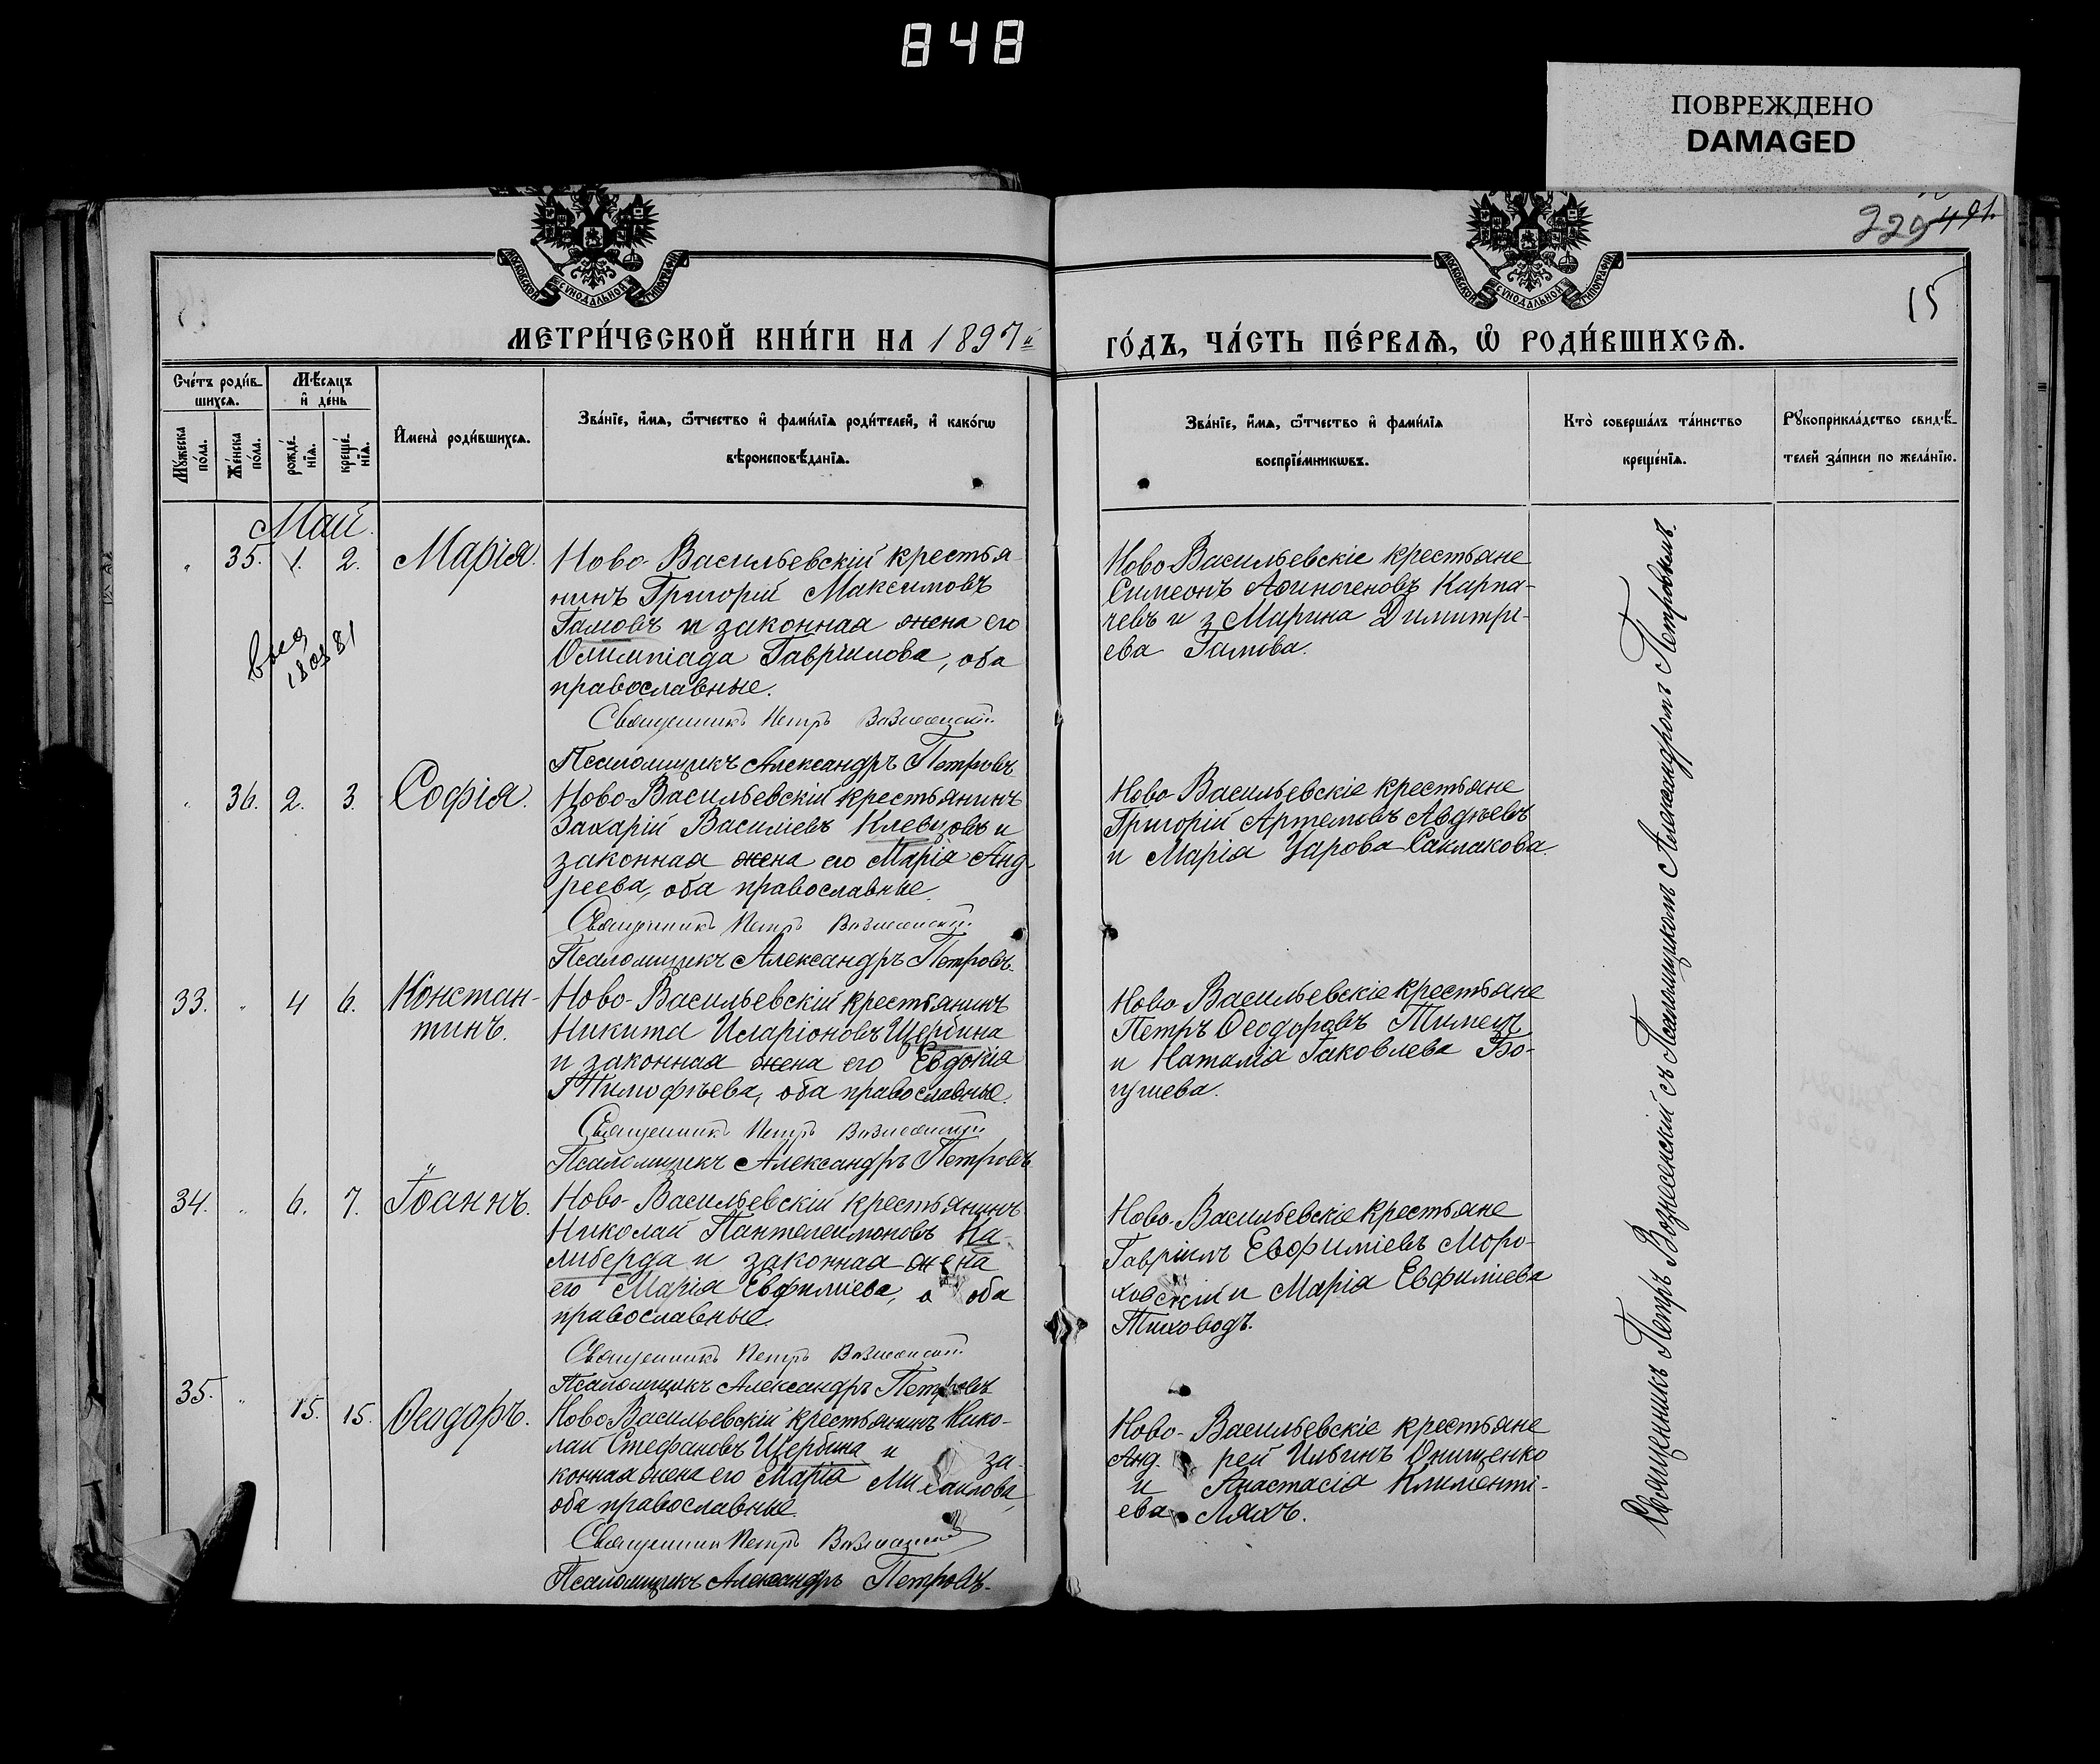 848
ПОВРЕЖДЕНО
DAMAGED
229 491.
15
МОСКОВСКОЙ СѴНОДАЛЬНОЙ ТИПОГРАФІИ
МОСКОВСКОЙ СѴНОДАЛЬНОЙ ТИПОГРАФІИ
МЕТРИ́ЧЕСКОЙ КНИ́ГИ НА 1897й
ГО́ДЪ, ЧА́СТЬ ПЕ́РВАѦ, Ѡ҆ РОДИ́ВШИХСѦ.
Сче́тъ роди́в-
шихсѧ.
Мꙋ́жеска
по́ла.
Же́нска
по́ла.
Мѣ́сѧцъ
и҆ де́нь
рожде́-
нїѧ.
креще́-
нїѧ.
И҆мена̀ роди́вшихсѧ.
Зва́нїе, и҆́мѧ, ѻ҆́тчество и҆ фами́лїѧ роди́телей, и҆ како́гѡ
вѣроисповѣ́данїѧ.
Зва́нїе, и҆́мѧ, ѻ҆́тчество и҆ фами́лїѧ
воспрїе́мникѡвъ.
Кто̀ соверша́лъ та́инство
креще́нїѧ.
Рꙋкоприкла́дство свидѣ́-
телей за́писи по жела́нїю.
Май.
" 35. 1. 2. Марія.
Ново-Васильевскій крестья
нинъ Григорій Максимовъ
Гамовъ и законная жена его
Олимпіада Гавріилова, оба
православные.
Священникъ Петръ Вознесенскій
Псаломщикъ Александръ Петровъ
Ново Васильевскіе крестьяне
Симеонъ Аѳиногеновъ Карпа-
чевъ и Марина Димитрі-
ева Гамова.
" 36. 2. 3. Софія.
Ново-Васильевскій крестьянинъ
Захарій Василіевъ Клевцовъ и
законная жена его Марія Анд
реева, оба православные.
Священникъ Петръ Вознесенскій
Псаломщикъ Александръ Петровъ.
Ново-Васильевскіе крестьяне
Григорій Артемовъ Авдѣевъ
и Марія Уарова Саклакова.
33. " 4 6. Констан-
тинъ.
Ново-Васильевскій крестьянинъ
Никита Иларіоновъ Щербина
и законная жена его Евдокія
Тимофѣева, оба православные.
Священникъ Петръ Вознесенскій
Псаломщикъ Александръ Петровъ
Ново Васильевскіе крестьяне
Петръ Ѳеодоровъ
и Наталія Іаковлева Бо-
гушева.
34. " 6. 7. Іоаннъ.
Ново-Васильевскій крестьянинъ
Николай Пантелеимоновъ Ка-
либерда и законная жена
его Марія Евфиміева, о оба
православные.
Священникъ Петръ Вознесенскій
Псаломщикъ Александръ Петровъ
Ново-Васильевскіе крестьяне
Гавріилъ Евфиміевъ Моро-
ховскій и Марія Евфиміева
Тиховодъ.
35. " 15. 15. Ѳеодоръ.
Ново Васильевскій крестьянинъ Нико-
лай Стефановъ Щербина и за-
конная жена его Марія Михаилова,
оба православные.
Священникъ Петръ Вознесенскій
Псаломщикъ Александръ Петровъ.
Ново-Васильевскіе крестьяне
Анд рей Ильинъ Онищенко
и Анастасія Клименті-
ева Ляхъ.
Священникъ Петръ Вознесенскій съ Псаломщикомъ Александромъ Петровымъ.